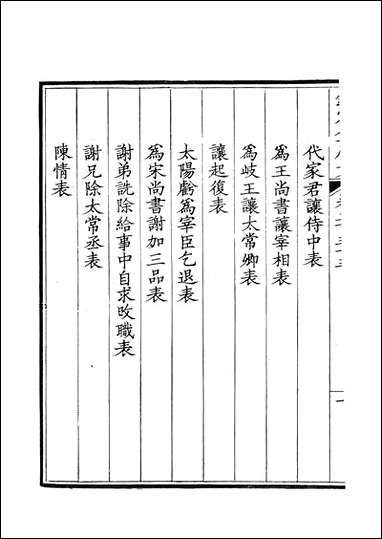 代家君讓侍中表
為王尚書讓宰相表
為岐王讓太常卿表
讓起復表
太陽虧為宰臣乞退表
為宋尚書謝加三品表
謝弟詵除給事中自求改職表
謝兄除太常丞表
陳情表